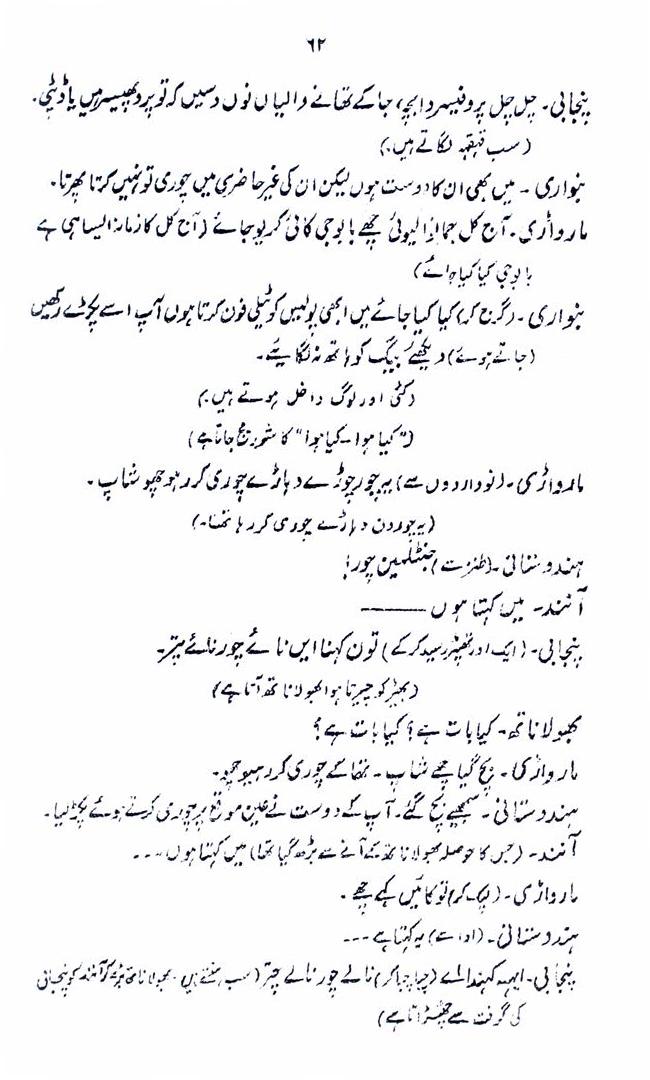 ۶۲
پنجابی۔ چل چل پروفیسر دا بچہ، جا کے تھانے والیاں نوں دسیں کہ تو پروفیسر ہیں یا ڈپٹی۔
(سب قہقہہ لگاتے ہیں۔)
بنواری ۔ میں بھی ان کا دوست ہوں لیکن ان کی غیر حاضری میں چوری تو نہیں کرتا پھرتا۔
مارواڑی۔ آج کل جمانا الیوئی چھے بابوجی کائی گریو جائے (آج کل کا زمانہ ایسا ہی ہے
بابوجی کیا کیا جائے)
بنواری ۔ (گرج کر) کیا کیا جائے میں ابھی پولیس کو ٹیلی فون کرتا ہوں آپ اسے پکڑے رکھیں
(جاتے ہوئے) دیکھئے بیگ کو ہاتھ نہ لگائیے۔
(کئی اور لوگ داخل ہوتے ہیں۔)
("کیا ہوا ۔ کیا ہوا" کا شور مچ جاتا ہے)
مارواڑی۔ (نو واردوں سے) یہ چور دہاڑے چوری کرر ہیو چھو شاپ ۔
(یہ چور دن دہاڑے چوری کر رہا تھا۔)
ہندوستانی۔ (طنز سے) جنٹلمین چور!
آنند۔ میں کہتا ہوں ———
پنجابی۔ (ایک اور تھپڑ رسید کر کے) توں کہنا ایں نالے چور نالے چتر۔
(بھیڑ کو چیرتا ہوا بھولا ناتھ آتا ہے)
بھولا ناتھ۔ کیا بات ہے؟ کیا بات ہے؟
مارواڑی۔ بچ گیا چھے شاپ ۔ تھا کے چوری کرر ہیو چھو۔
ہندوستانی۔ سمجھیے بچ گئے۔ آپ کے دوست نے عین موقع پر چوری کرتے ہوئے پکڑ لیا۔
آنند۔ (جس کا حوصلہ بھولا ناتھ کے آنے سے بڑھ گیا تھا) میں کہتا ہوں ۔۔۔
مارواڑی۔ (لپک کر) تو کائیں کہے چھے ۔
ہندوستانی۔ (ادا سے) یہ کہتا ہے ۔۔۔
پنجابی۔ ایہہ کہندا اے (چبا چبا کر) نالے چور نالے چتر (سب ہنستے ہیں ۔ بھولا ناتھ بڑھ کر آنند کو پنجابی
کی گرفت سے چھڑاتا ہے)